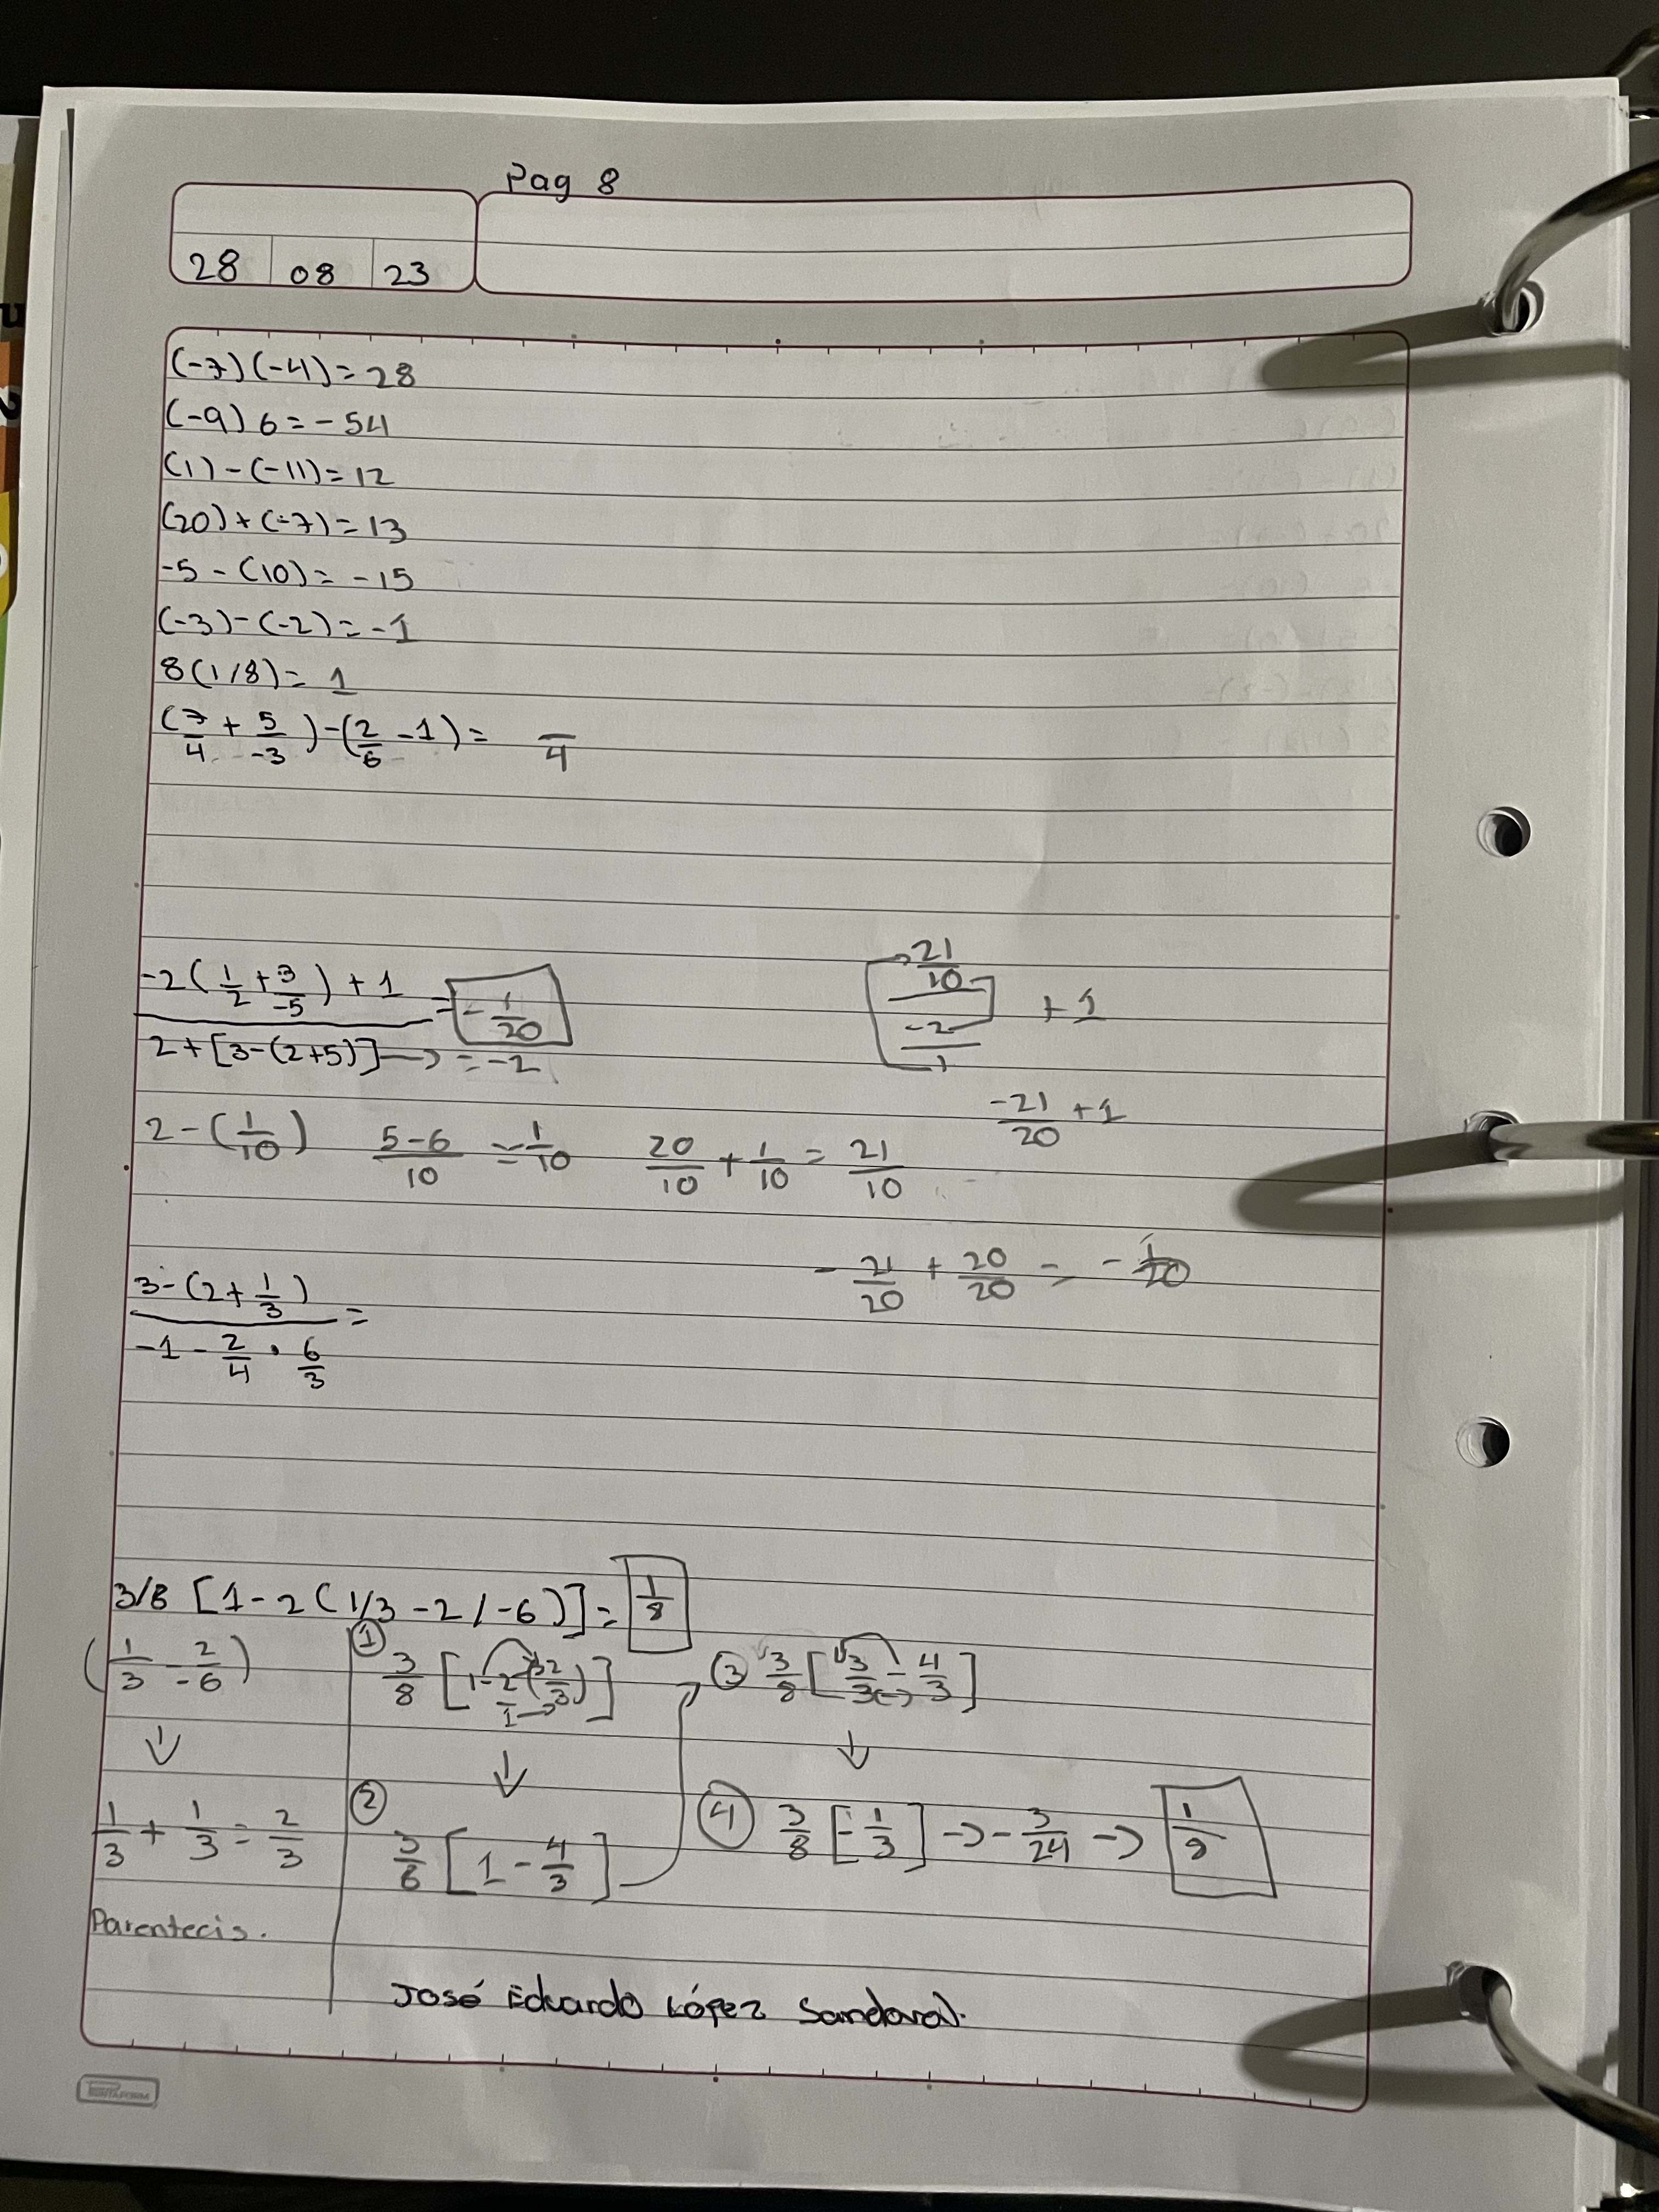 Pag 8
28 08 23
(-7)(-4)=28
(-9)6=-54
(1)-(-11)=12
(20)+(-7)=13
-5-(10)=-15
(-3)-(-2)=-1
8(1/8)=1
(7/4 + 5/-3)-(2/6 -1)= /4
-2(1/2+3/-5)+1 / 2+[3-(2+5)] → =-2 = -1/20
21/10 / -2/1 +1
-21/20 +1
2-(1/10) 5-6/10 =-1/10 20/10+1/10=21/10
-21/20+20/20=-1/20
3-(2+1/3) / -1-2/4·6/3 =
3/8 [1-2(1/3-2/-6)]= 1/8
(1/3 - 2/-6)
↓
1/3+1/3=2/3
Parentecis.
① 3/8[1-2/1(2/3)]
↓
② 3/8[1-4/3]
③ 3/8[3/3-4/3]
↓
④ 3/8[-1/3] → -3/24 → 1/8
José Eduardo López Sandoval.